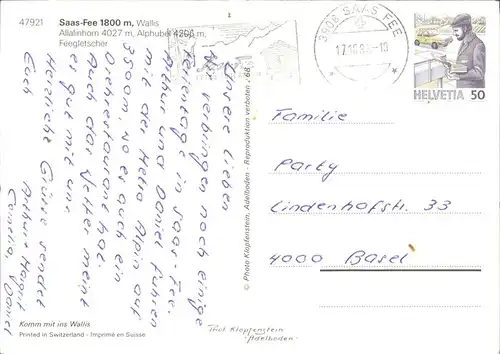 47921
Saas-Fee 1800 m, Wallis
Allalinhorn 4027 m, Alphubel 4206 m,
Feegletscher
3906 SAAS FEE
HELVETIA 50
Unsere Lieben
Wir verbringen noch einige
Ferientage in Saas-Fee.
Arthur und Daniel fuhren
mit der Metro Alpin auf
3500m, wo es auch ein
Drehrestaurant hat.
Auch das Wetter meint
es gut mit uns.
Herzliche Grüsse sendet
Euch
Arthur Margrit
Daniel
© Photo Klopfenstein, Adelboden - Reproduktion verboten
Familie
Party
Lindenhofstr. 33
4000 Basel
Komm mit ins Wallis
Printed in Switzerland - Imprimé en Suisse
Thöt Klopfenstein
Adelboden